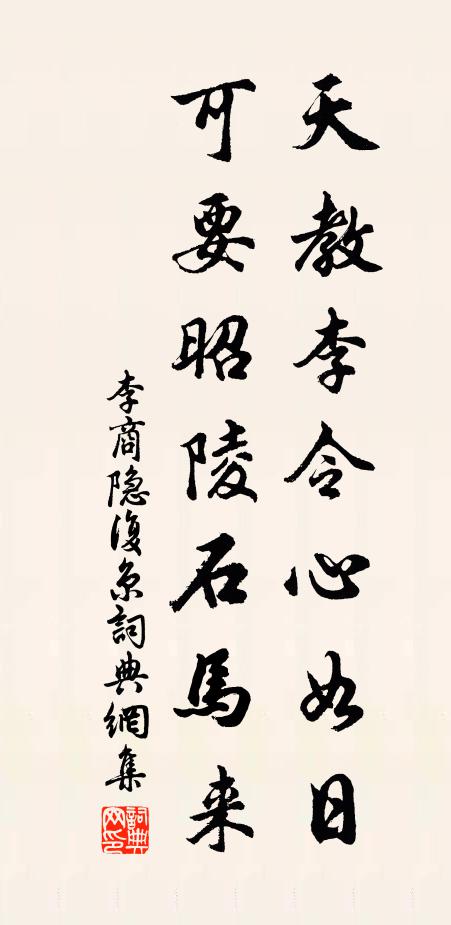 天教李令心如日
可要昭陵石馬来
李商隐復京詞典網集
詞典网印